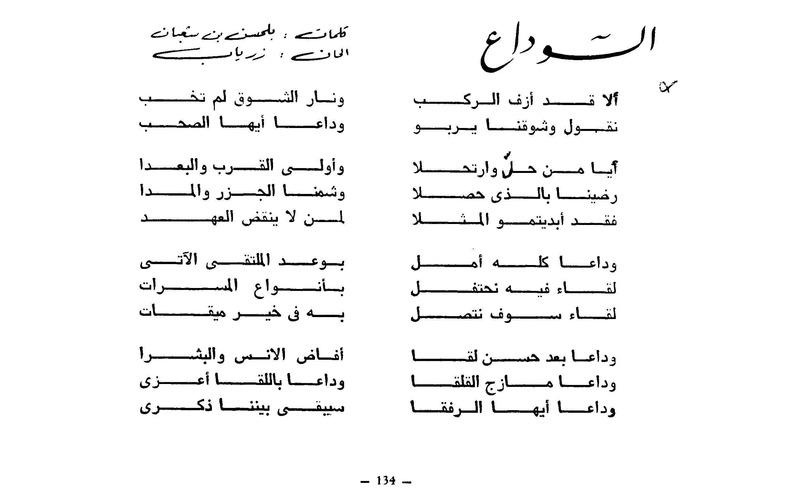 الوداع
كلمات : بلحسن بن شعبان
الحان : زرياب
ألا قد أزف الركب ونار الشوق لم تخب
نقول وشوقنا يربو وداعا أيها الصحب
أيا من حلّ وارتحلا وأولى القرب والبعدا
رضينا بالذى حصلا وشمنا الجزر والمدا
فقد أبديتمو المثلا لمن لا ينقض العهد
وداعا كله أمل بوعد الملتقى الآتى
لقاء فيه نحتفل بأنواع المسرات
لقاء سوف نتصل به فى خير ميقات
وداعا بعد حسن لقا أفاض الانس والبشرا
وداعا مازج القلقا وداعا باللقا أعزى
وداعا أيها الرفقا سيبقى بيننا ذكرى
– 134 –